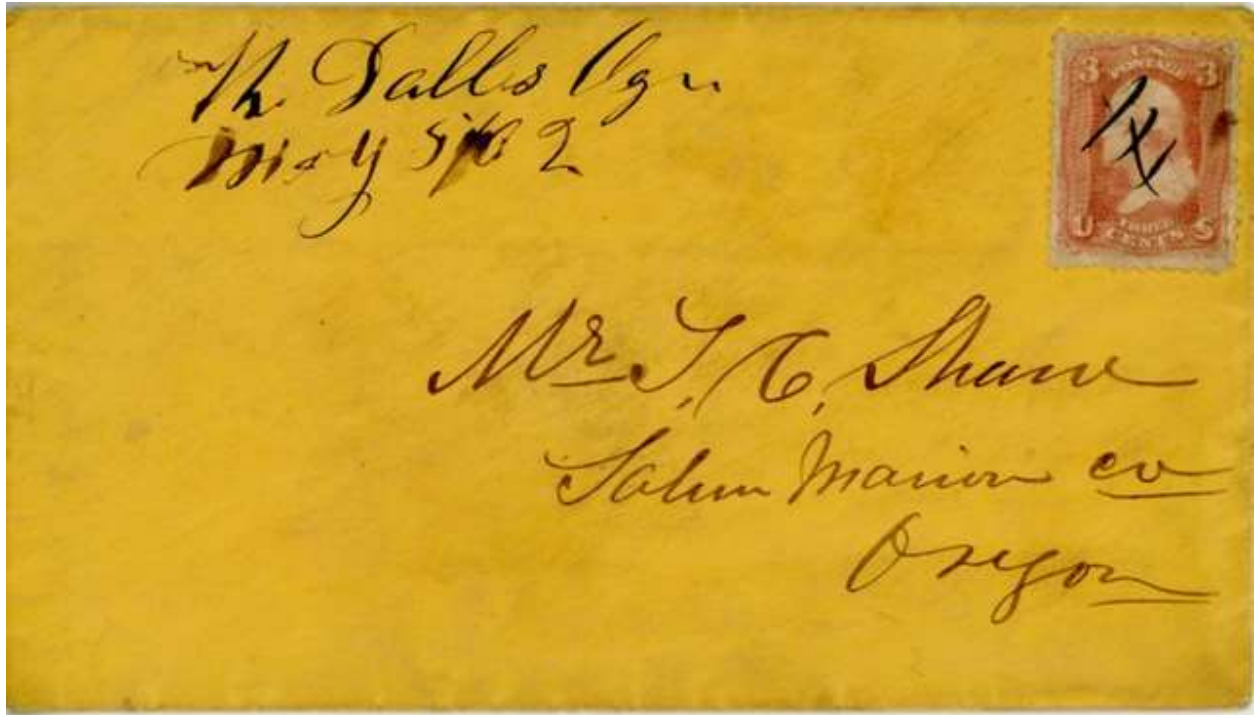 The Dalles Ogn
May 5/62
U.S.
POSTAGE
3 3
U S
THREE
CENTS
Mr T. C. Shaw
Salem Marion co
Oregon